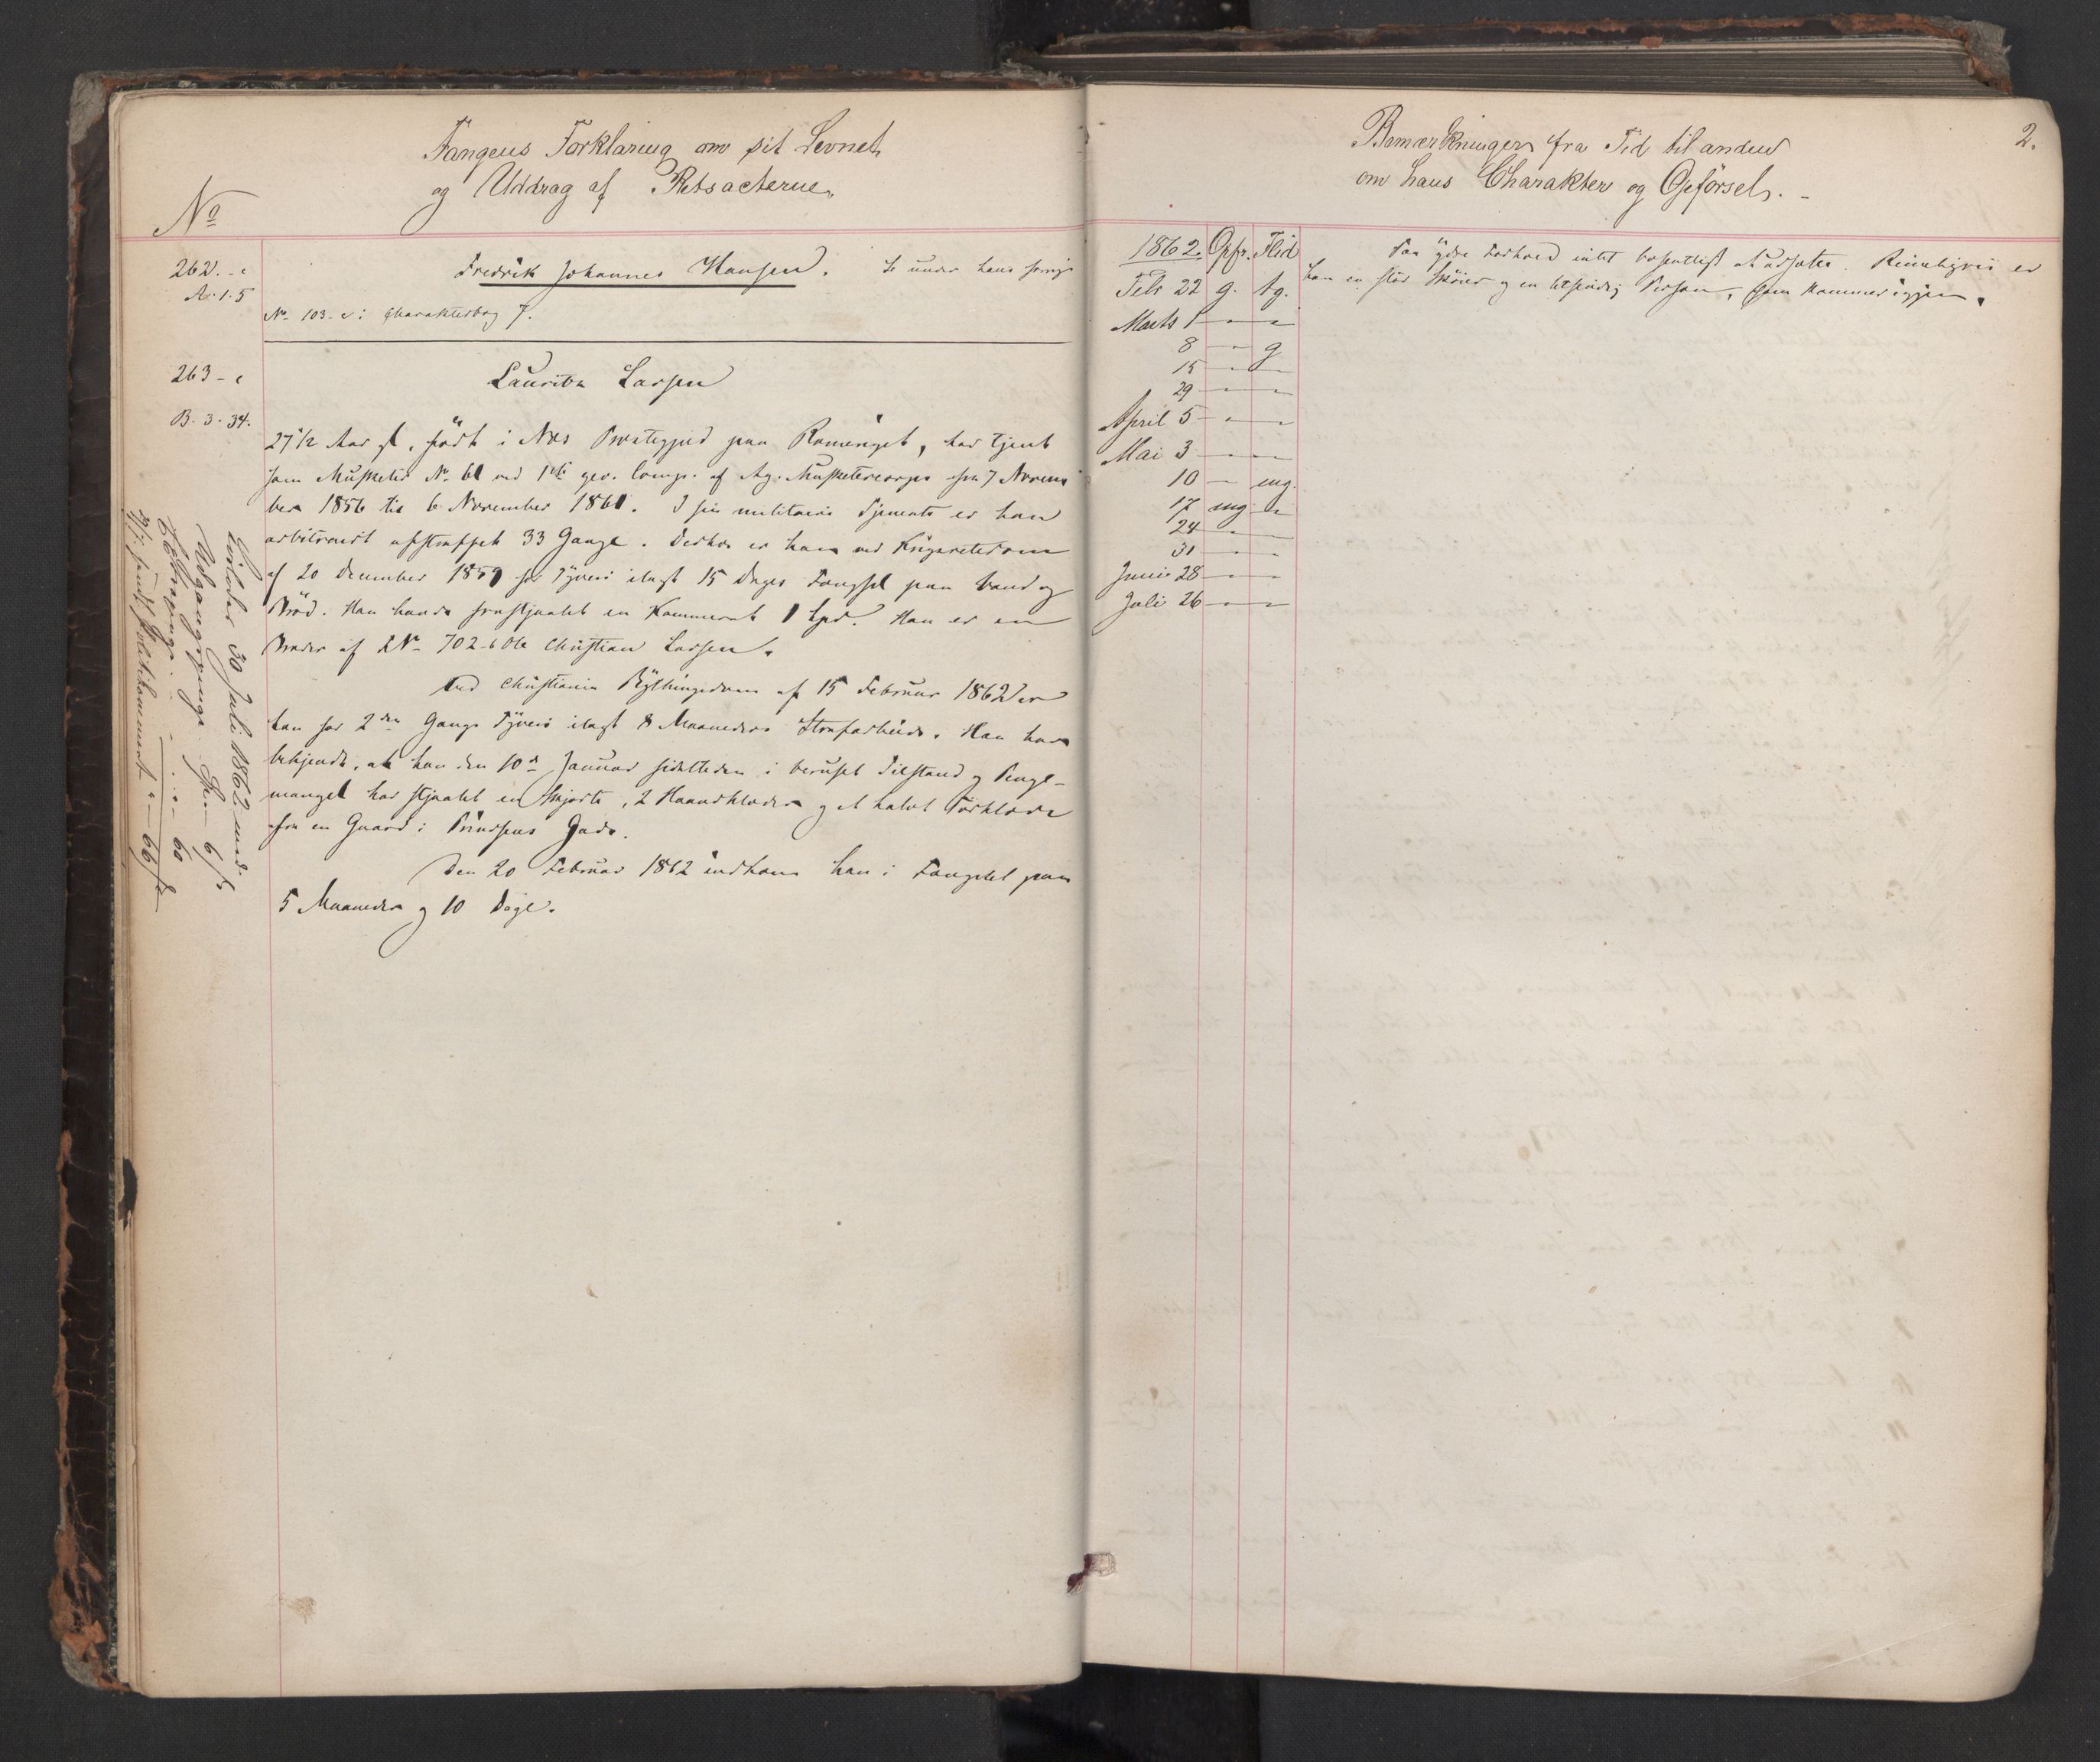 Fangens Forklaring om sit Levnet
og Uddrag af Retsacterne.
No
262.-c
A. 1. 5
Fredrik Johannes Hansen. Se under hans forrige
No 103-c i Charakterbog 7.
263-c
B. 3. 34.
Lauritz Larsen
27 1/2 Aar gl., født i Næs Prestegjeld paa Romeriget, har tjent
som Musketer No 61 ved 1ste gev. Comp. af Ag. Musketercorps fra 7 Novem
ber 1856 til 6 November 1861. I sin militaire Tjeneste er han
arbitrairt afstraffet 33 Gange. Desuden er han ved Krigsretsdom
af 20 December 1859 for Tyveri ilagt 15 Dages Fængsel paa Vand og
Brød. Han havde frastjaalet en Kammerat 1 Spd. Han er en
Broder af No 702-b Ole Christian Larsen.
Ved Christiania Bythingsdom af 15 Februar 1862 er
han for 2den Gangs Tyveri ilagt 8 Maaneders Strafarbeide. Han har
bekjendt, at han den 10de Januar sidstleden i beruset Tilstand og Penge-
mangel har stjaalet en Skjorte, 2 Haandklæder og et halvt Tørklæde
fra en Gaard i Prindsens Gade.
Den 20 Februar 1862 indkom han i Fængslet paa
5 Maaneder og 10 Dage.
Løsladt 30 Juli 1862 med
Udgangspenge 6 s
60
66 s
Bemærkninger fra Tid til anden
om hans Charakter og Opførsel. -
2.
1862. Opfr. Flid
Febr 22 g. tg.
Marts 1 - -
8 - g
15 - -
29 - -
April 5 - -
Mai 3 - -
10 - mg.
17 mg -
24 - -
31 - -
Junii 28 - -
Juli 26 - -
Paa ydre Forhold intet væsentligt at udsætte. Rimeligvis er
han en stor Skøier og en letsindig Person, som kommer igjen.